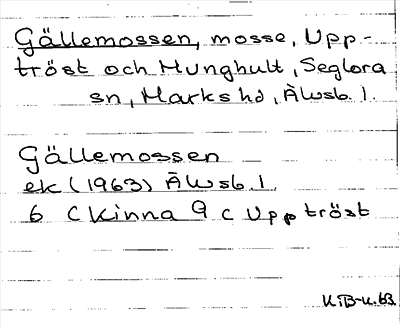 Gällemossen, mosse, Upp-
tröst och Munghult, Seglora
sn, Marks hd, Älvsb. l.
Gällemossen
ek (1963) Älvsb. l.
6 c Kinna 9 c Upptröst